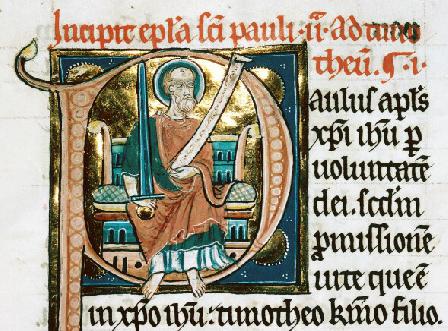 Incipit epl̃a sc̃i pauli · ii · Ad timo
theũ . C̃ · i ·
Paulus apl̃s
xp̃i ih̃u ꝑ
uoluntatẽ
dei. scd̃m
ꝓmissionẽ
uite que ẽ
in xp̃o ih̃u: timotheo kr̃mo filio.